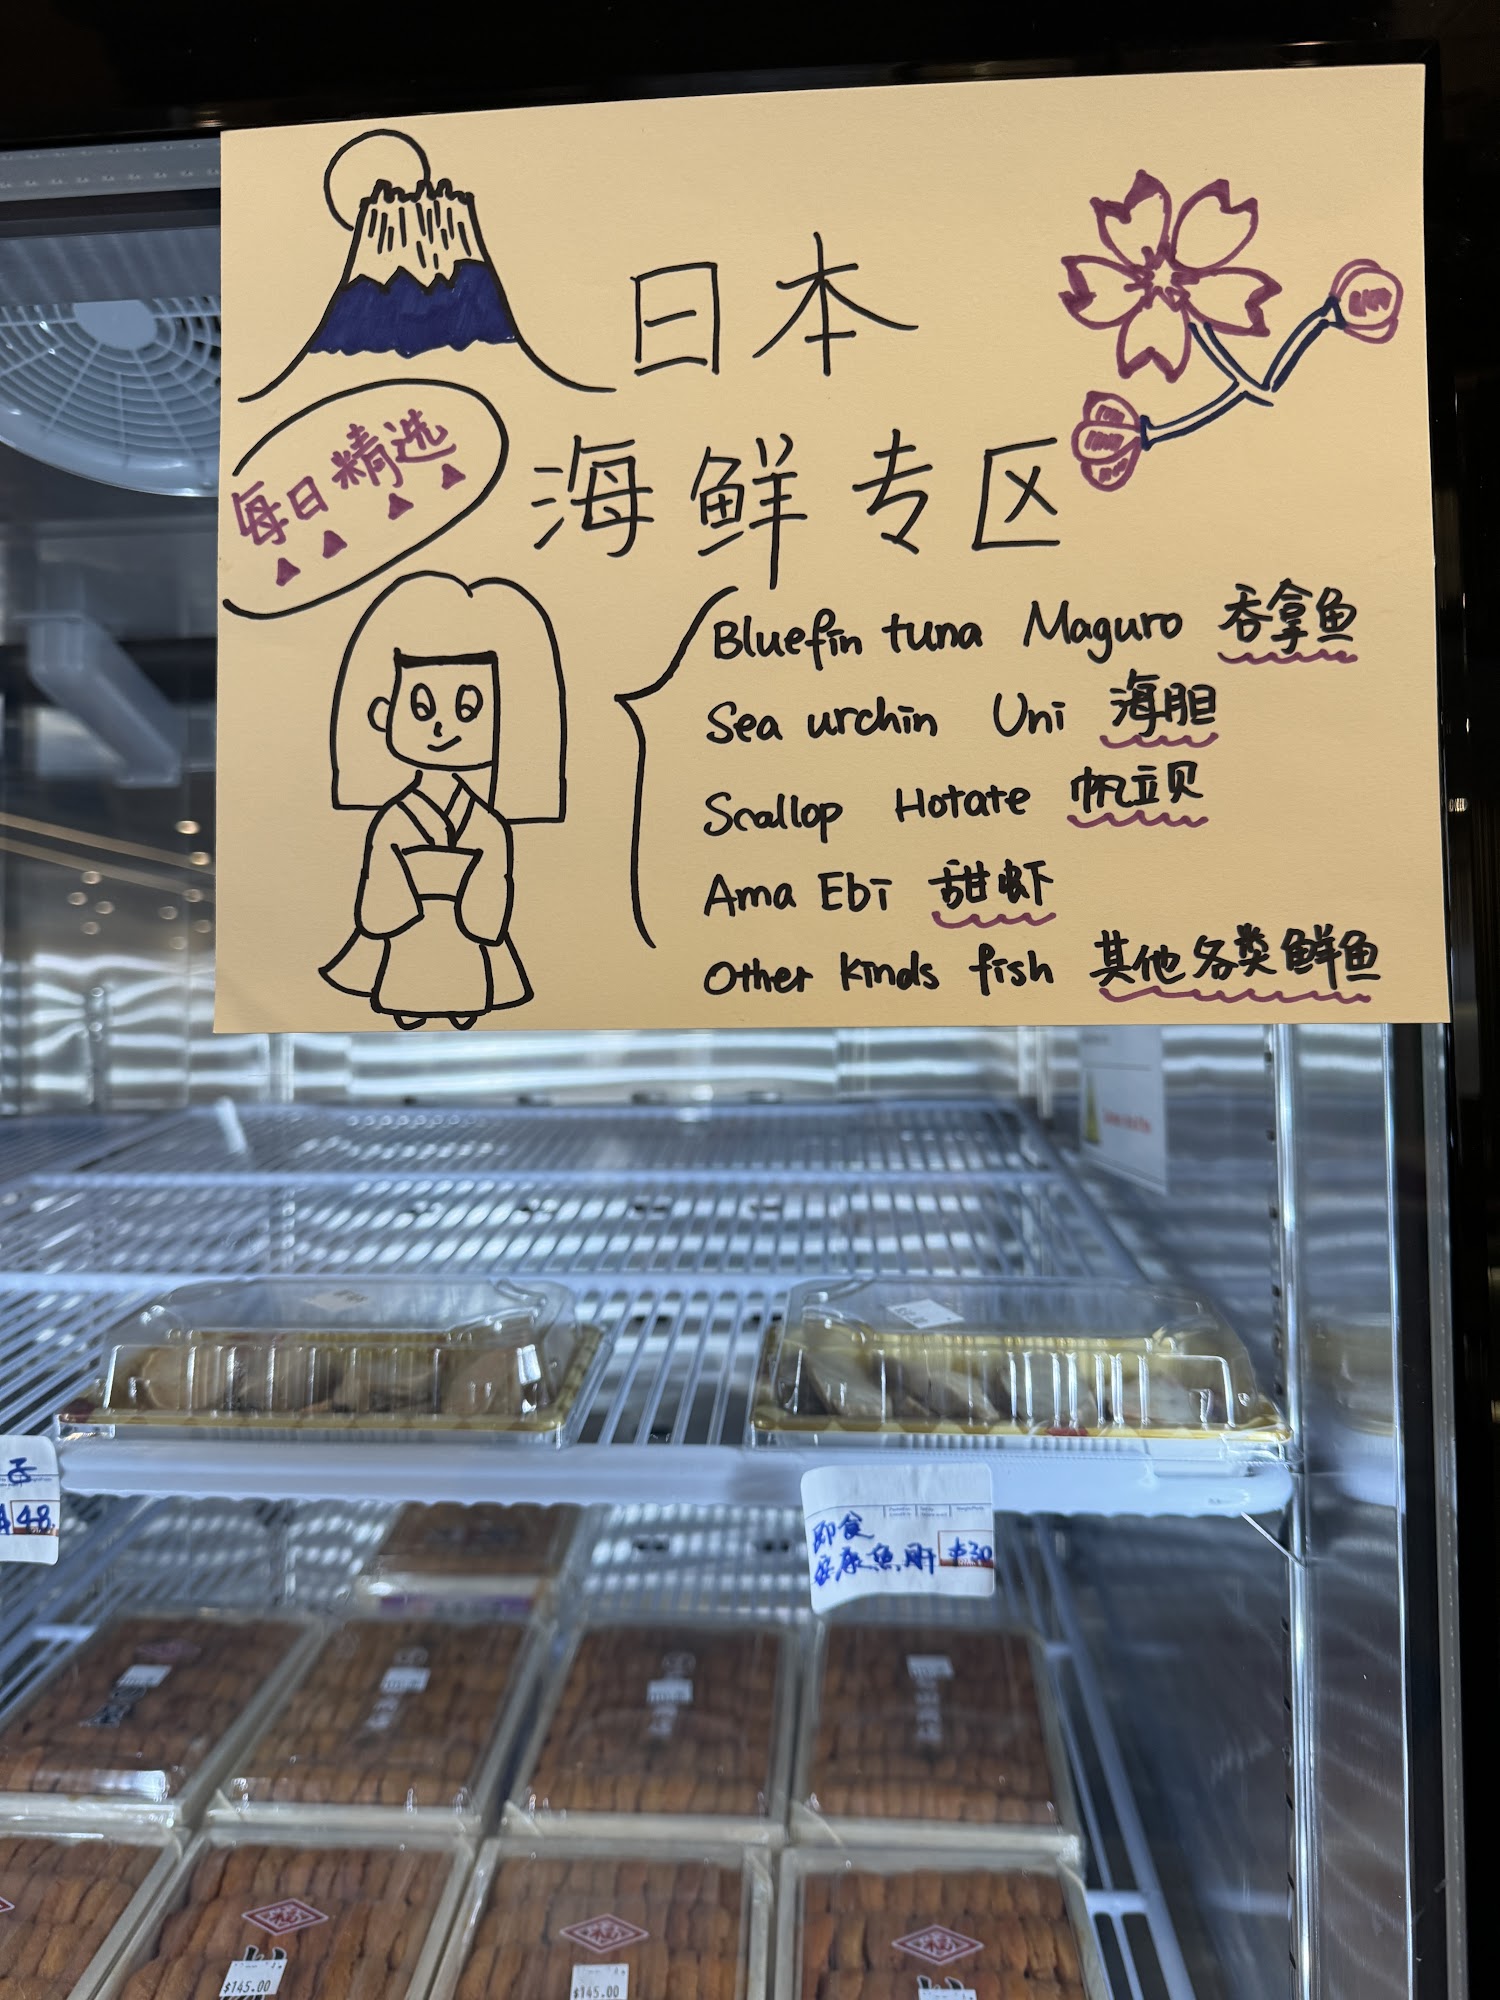 日本
海鲜专区
每日精选
Bluefin tuna Maguro 吞拿鱼
Sea urchin Uni 海胆
Scallop Hotate 帆立贝
Ama Ebi 甜虾
Other kinds fish 其他各类鲜鱼
$48
即食
鮟康魚肝 $30
$145.00
$145.00